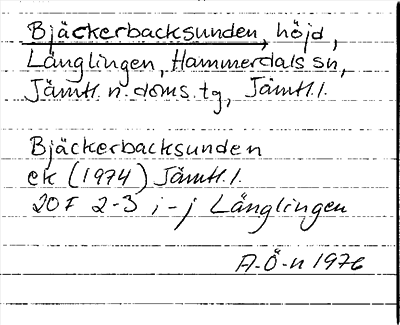 Bjäckerbacksunden, höjd,
Långlingen, Hammerdals sn,
Jämtl. n. doms. tg, Jämtl. l.
Bjäckerbacksunden
ek (1974) Jämtl. l.
20F 2-3 i-j Långlingen
A-Ö-n 1976